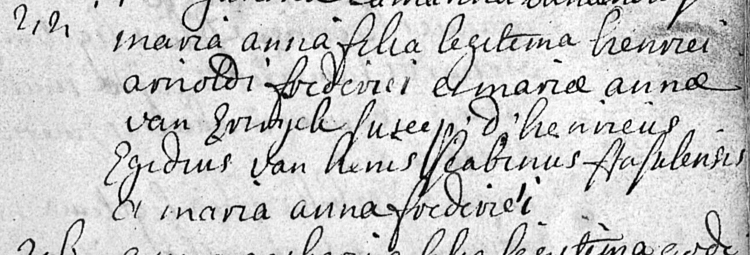 22
maria anna filia legitima henrici
arnoldi frederici et mariæ annæ
van suscep: d: henricus
Egidius van henis scabinus
et maria anna frederici
filia legitima